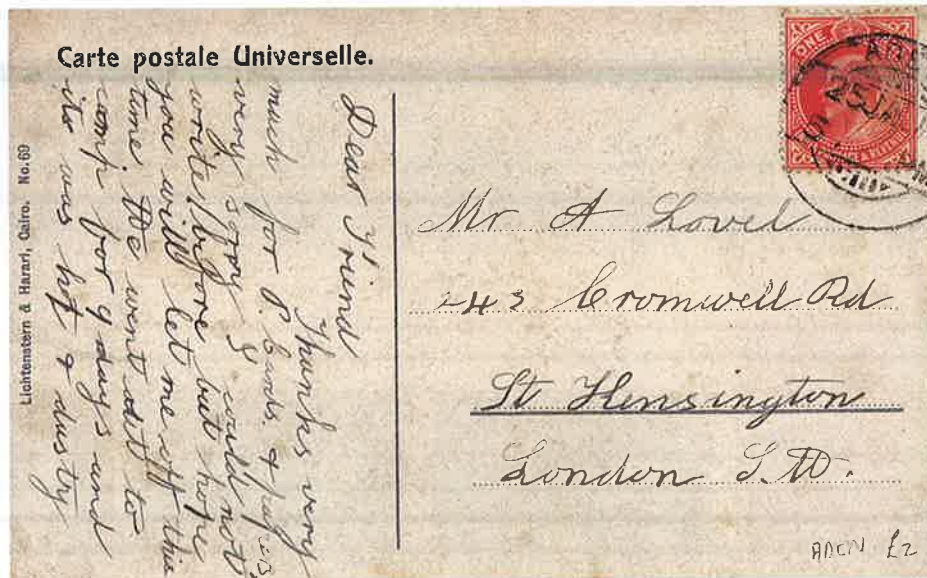 Carte postale Universelle.
Lichtenstern & Harari, Cairo. No. 69
Dear Friend
Thanks very
much for P. Cards. &
very sorry I could not
write before but hope
you will let me off this
time. We went out to
camp for 9 days and
its was hot & dusty
ONE
25 JA
Mr A Lovel
243 Cromwell Rd
St Kensington
London S.W.
ADEN £2